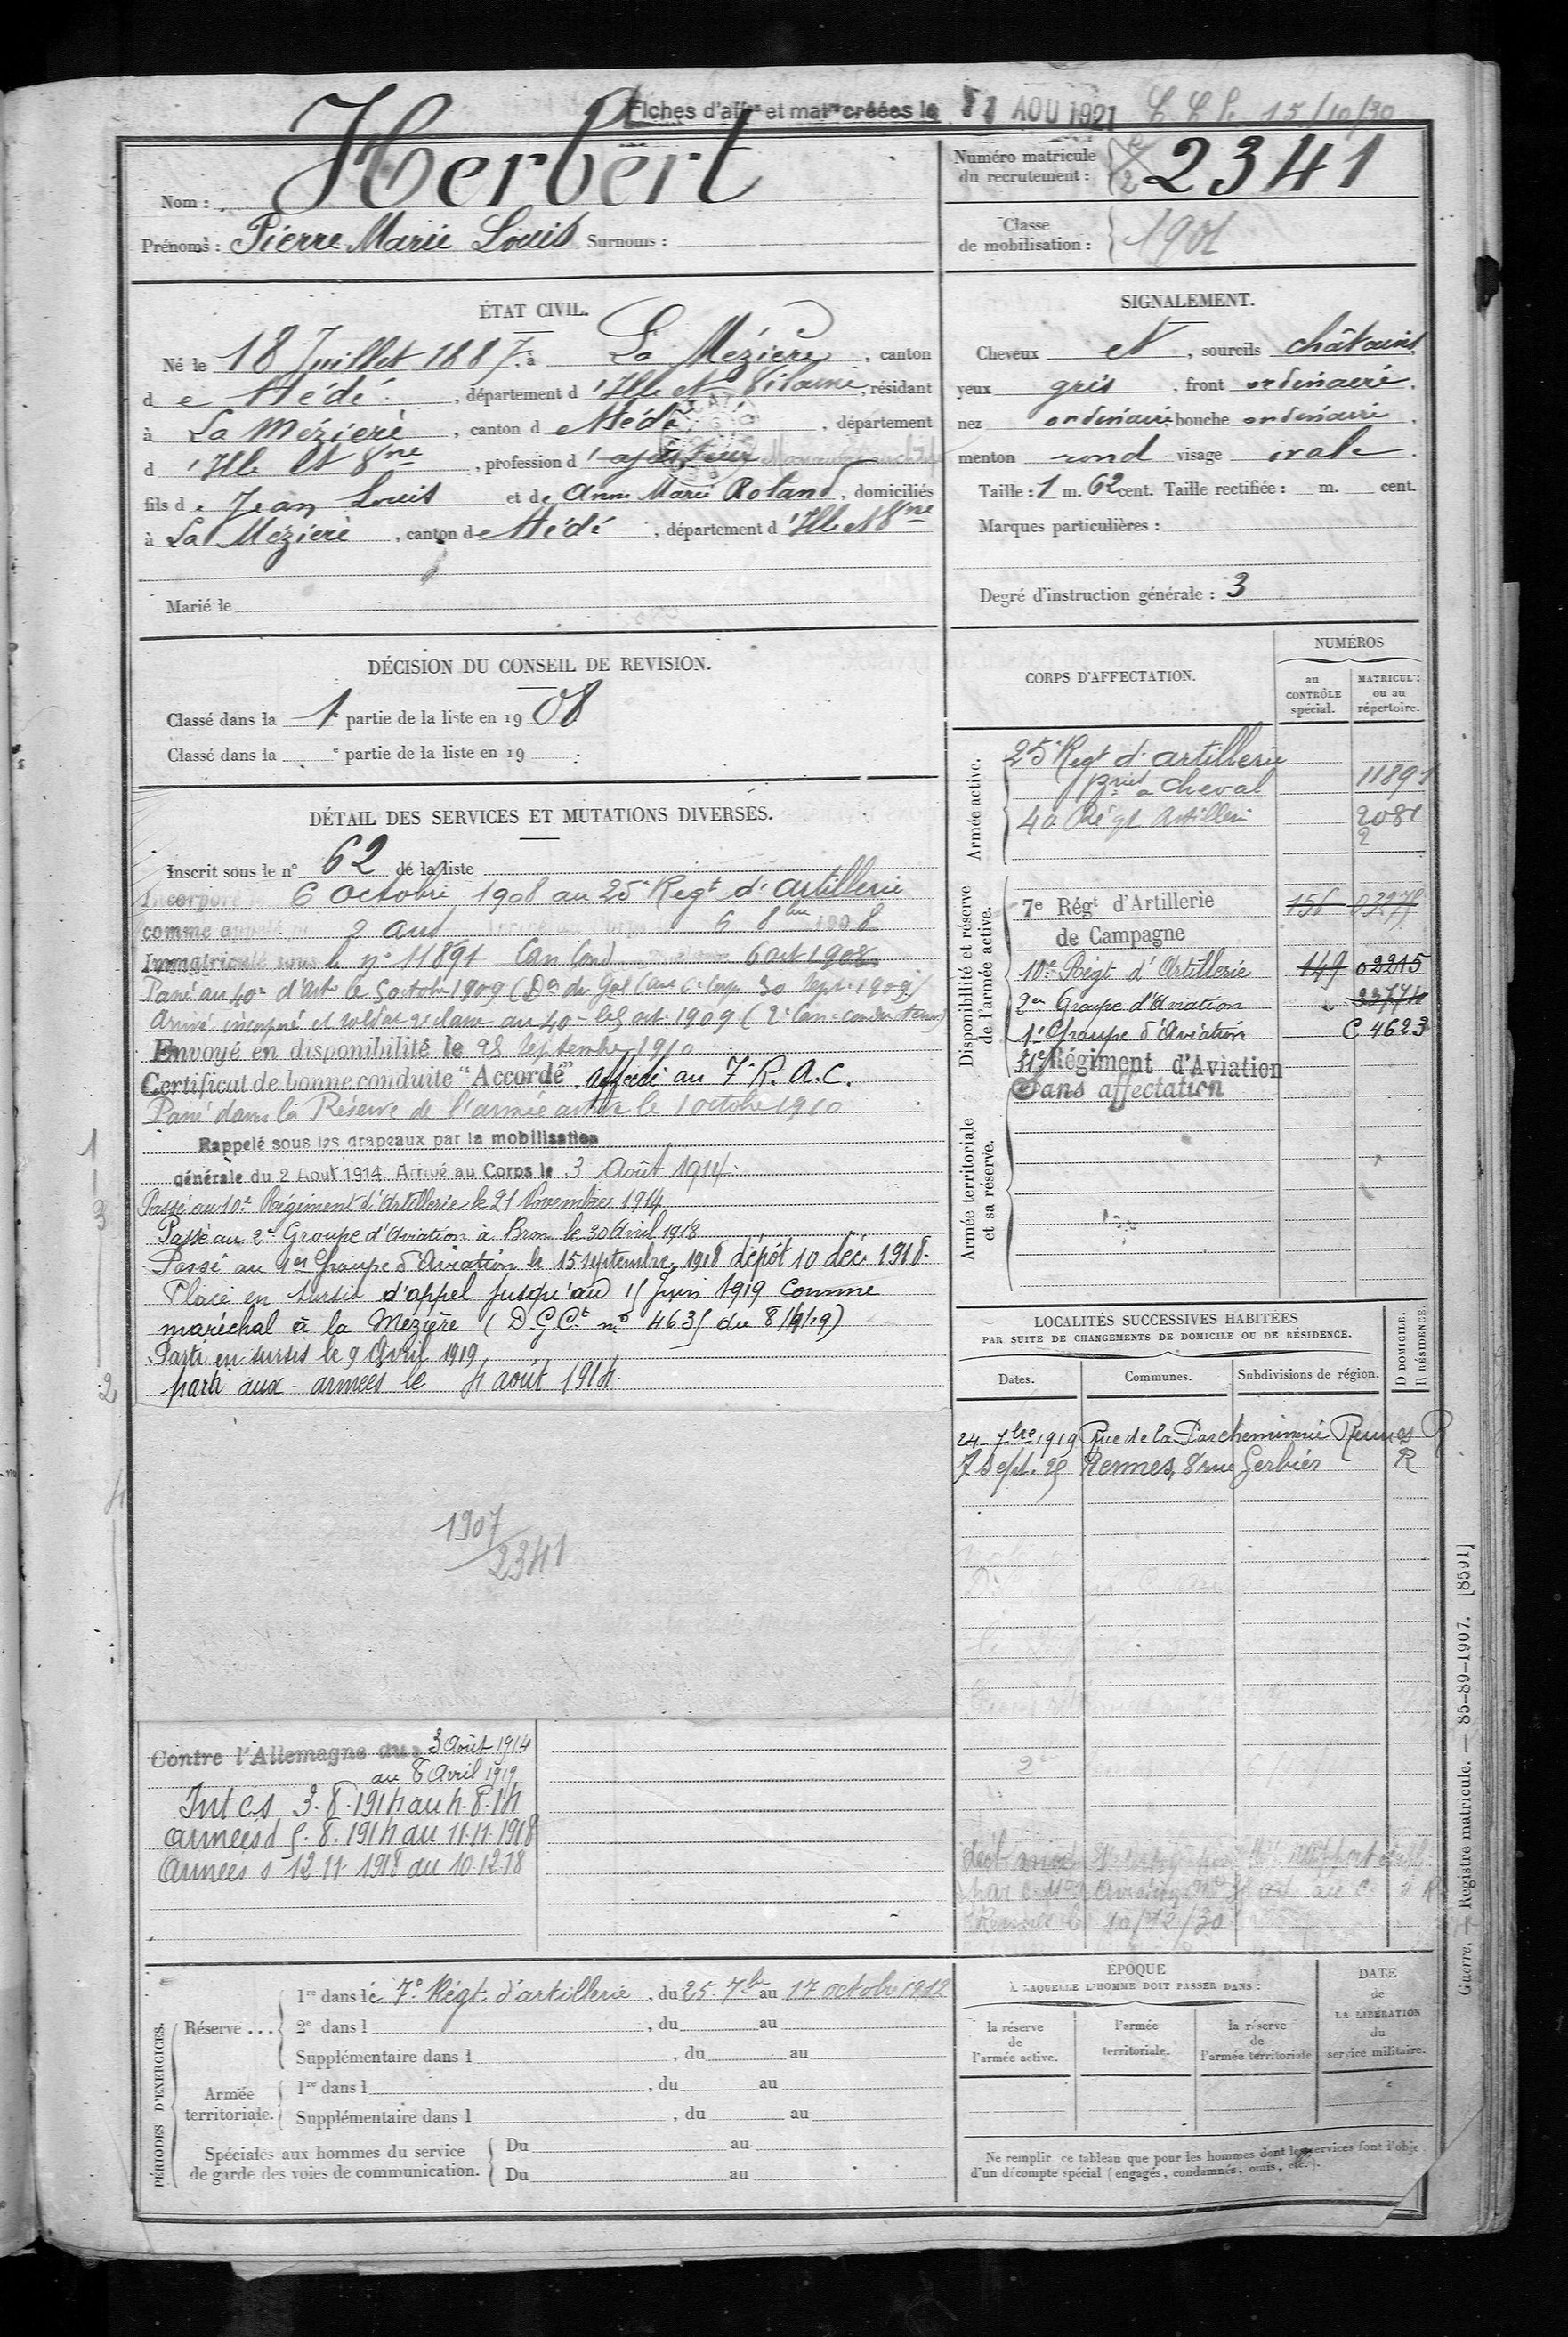 Fiches d'affon et matles créées le 1 AOU 1921 15/10/30
Nom : Herbert
Prénoms : Pierre Marie Louis Surnoms :
Numéro matricule du recrutement : 2341
Classe de mobilisation : 1901
ÉTAT CIVIL.
Né le 18 Juillet 1887, à La Mézière, canton
d e Hédé, département d 'Ille et Vilaine, résidant
à La Mézière, canton d e Hédé, département
d 'Ille et Vne, profession d 'ajusteur
fils d e Jean Louis et de Anne Marie Roland, domiciliés
à La Mézière, canton de Hédé, département d 'Ille et Vne
Marié le
SIGNALEMENT.
Cheveux et, sourcils châtains
yeux gris, front ordinaire.
nez ordinaire bouche ordinaire
menton rond visage ovale.
Taille : 1 m. 62 cent. Taille rectifiée : m. cent.
Marques particulières :
Degré d'instruction générale : 3
DÉCISION DU CONSEIL DE REVISION.
Classé dans la 1e partie de la liste en 1908
Classé dans la e partie de la liste en 19
DÉTAIL DES SERVICES ET MUTATIONS DIVERSES.
Inscrit sous le n° 62 de la liste
Incorporé le 6 Octobre 1908 au 25e Regt d'artillerie
comme appelé 2 ans 6 8bre 1908
Immatriculé sous le n° 11891 Can Cond 6 oct 1908
Passé au 40e d'Artie le 5 octobre 1909 (Don du Gal Cant 6e Corps 30 Sept. 1909)
Arrivé incorporé et soldat 2e classe au 40e le 5 oct. 1909 (2e Can = conducteur)
Envoyé en disponibilité le 25 Septembre 1910
Certificat de bonne conduite "Accordé" Affecté au 7e R.A.C.
Passé dans la Réserve de l'armée active le 1 octobre 1910
Rappelé sous les drapeaux par la mobilisation
générale du 2 Aout 1914. Arrivé au Corps le 3 Août 1914.
Passé au 10e Régiment d'Artillerie le 21 Novembre 1914
Passé au 2e Groupe d'Aviation à Bron le 30 Avril 1918
Passé au 1er Groupe d'Aviation le 15 septembre 1918 dépôt 10 déc. 1918.
Placé en sursis d'appel jusqu'au 15 Juin 1919 comme
maréchal à la Mézière (D.G.Ct n° 4635 du 8/4/19)
Parti en sursis le 9 Avril 1919
parti aux armées le 4 août 1914.
1907
2341
1
3
2
4
CORPS D'AFFECTATION.
NUMÉROS
au CONTRÔLE spécial.
MATRICULE ou au répertoire.
Armée active.
25e Regt d'artillerie
à Cheval 11891
40 Régt Artillerie 2081
2
Disponibilité et réserve de l'armée active.
7e Régt d'Artillerie 156 03278
de Campagne
10e Régt d'Artillerie 149 02215
2e Groupe d'Aviation 33774
1er Groupe d'Aviation C 4623
31e Régiment d'Aviation
Sans affectation
Armée territoriale et sa réserve.
LOCALITÉS SUCCESSIVES HABITÉES
PAR SUITE DE CHANGEMENTS DE DOMICILE OU DE RÉSIDENCE.
Dates. Communes. Subdivisions de région. D DOMICILE. R RÉSIDENCE.
24 7bre 1919 Rue de la Parcheminerie Rennes R
7 Sept. 25 Rennes, 8 rue Gerbier R
10/12/30
Contre l'Allemagne du 3 Août 1914
au 8 Avril 1919
Int CS 3.8.1914 au 4.8.14
Armées d 5.8.1914 au 11.11.1918
Armées s 12.11.1918 au 10.12.18
PÉRIODES D'EXERCICES.
Réserve ...
1re dans le 7e Régt. d'artillerie, du 25 7bre au 17 octobre 1912
2e dans l , du au
Supplémentaire dans l , du au
Armée territoriale.
1re dans l , du au
Supplémentaire dans l , du au
Spéciales aux hommes du service de garde des voies de communication.
Du au
Du au
ÉPOQUE
À LAQUELLE L'HOMME DOIT PASSER DANS :
la réserve de l'armée active.
l'armée territoriale.
la réserve de l'armée territoriale
DATE de LA LIBÉRATION du service militaire.
Ne remplir ce tableau que pour les hommes dont les services font l'obje
d'un décompte spécial (engagés, condamnés, omis, etc.).
Guerre. — Registre matricule. — 85-89-1907. [8591]